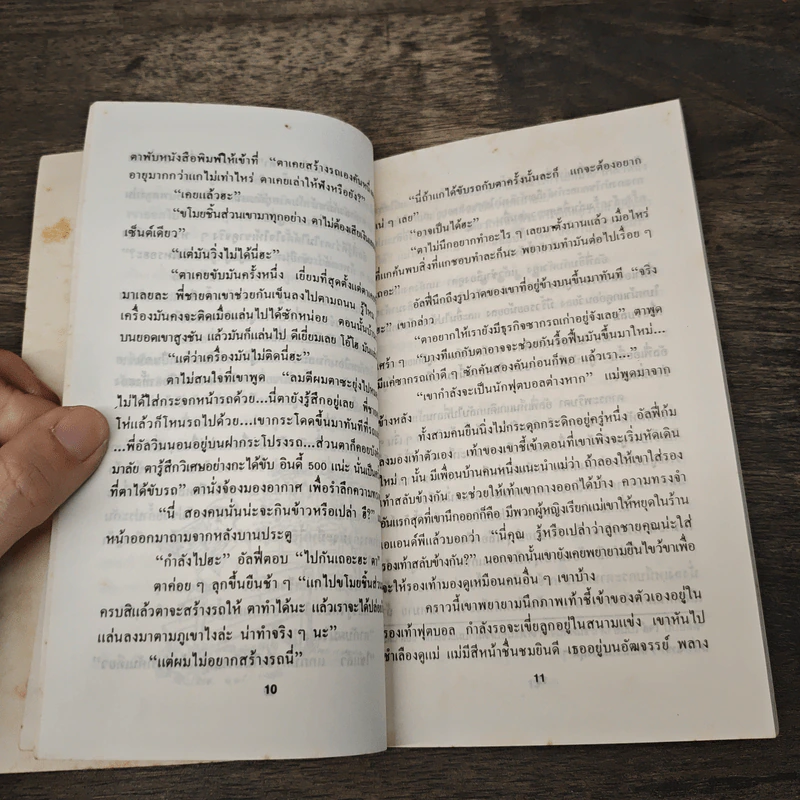 ตาพับหนังสือพิมพ์ให้เข้าที่ “ตาเคยสร้างรถเองคันหนึ่ง
อายุมากกว่าแกไม่เท่าไหร่ ตาเคยเล่าให้ฟังหรือยัง?”
“เคยแล้วฮะ”
“ขโมยชิ้นส่วนเขามาทุกอย่าง ตาไม่ต้องเสียเงิน
เซ็นต์เดียว”
“แต่มันวิ่งไม่ได้นี่ฮะ”
“ตาเคยขับมันครั้งหนึ่ง เยี่ยมที่สุดตั้งแต่
มาเลยละ พี่ชายตาเขาช่วยกันเข็นลงไปตามถนน รู้ไหม
เครื่องมันคงจะติดเมื่อแล่นไปได้ซักหน่อย ตอนนั้น
บนยอดเขาสูงชัน แล้วมันก็แล่นไป ดีเยี่ยมเลย โอ้โฮ มัน
“แต่ว่าเครื่องมันไม่ติดนี่ฮะ”
ตาไม่สนใจที่เขาพูด “ลมตีผมตาซะยุ่งไป
ไม่ได้ใส่กระจกหน้ารถด้วย...นี่ตายังรู้สึกอยู่เลย
โห่แล้วก็โหนรถไปด้วย...เขากระโดดขึ้นมาทันทีที่
...พี่อัลวินนอนอยู่บนฝากระโปรงรถ...ส่วนตาก็คอย
มาลัย ตารู้สึกวิเศษอย่างกะได้ขับ อินดี้ 500 แน่ะ นั่นเป็น
ที่ตาได้ขับรถ” ตานั่งจ้องมองอากาศ เพื่อรำลึกความ
“นี่ สองคนนั่นน่ะจะกินข้าวหรือเปล่า ฮึ?”
หน้าออกมาถามจากหลังบานประตู
“กำลังไปฮะ” อัลฟี่ตอบ “ไปกันเถอะฮะ ตา”
ตาค่อย ๆ ลุกขึ้นยืนช้า ๆ “แกไปขโมยชิ้นส่วน
ครบสิแล้วตาจะสร้างรถให้ ตาทำได้นะ แล้วเราจะได้ปล่อย
แล่นลงมาตามภูเขาไงล่ะ น่าทำจริง ๆ นะ”
“แต่ผมไม่อยากสร้างรถนี่”
10
“นี่ถ้าแกได้ขับรถกับตาครั้งนั้นละก็ แกจะต้องอยาก
ๆ เลย”
“อาจเป็นได้ฮะ”
“ตาไม่นึกอยากทำอะไร ๆ เลยมาตั้งนานแล้ว เมื่อไหร่
ที่แกค้นพบสิ่งที่แกชอบทำละก็นะ พยายามทำมันต่อไปเรื่อย ๆ
เถอะ”
อัลฟี่นึกถึงรูปวาดของเขาที่อยู่ข้างบนขึ้นมาทันที “จริง
ฮะ” เขากล่าว
“ตาอยากให้เรายังมีธุรกิจซากรถเก่าอยู่จังเลย” ตาพูด
เศร้า ๆ “บางทีแกกับตาอาจจะช่วยกันรื้อฟื้นมันขึ้นมาใหม่...
มีแค่ซากรถเก่าดี ๆ ซักคันสองคันก่อนก็พอ แล้วเรา...”
“เขากำลังจะเป็นนักฟุตบอลต่างหาก” แม่พูดมาจาก
ข้างหลัง
ทั้งสามคนยืนนิ่งไม่กระดุกกระดิกอยู่ครู่หนึ่ง อัลฟี่ก้ม
ลงมองเท้าตัวเอง เท้าของเขาชี้เข้าตอนที่เขาเพิ่งจะเริ่มหัดเดิน
ใหม่ ๆ นั้น มีเพื่อนบ้านคนหนึ่งแนะนำแม่ว่า ถ้าลองให้เขาใส่รอง
เท้าสลับข้างกัน จะช่วยให้เท้าเขากางออกได้บ้าง ความทรงจำ
อันแรกสุดที่เขานึกออกก็คือ มีพวกผู้หญิงเรียกแม่เขาให้หยุดในร้าน
เอแอนด์พีแล้วบอกว่า “นี่คุณ รู้หรือเปล่าว่าลูกชายคุณน่ะใส่
รองเท้าสลับข้างกัน?” นอกจากนั้นเขายังเคยพยายามยืนไขว้ขาเพื่อ
จะให้รองเท้ามองดูเหมือนคนอื่น ๆ เขาบ้าง
คราวนี้เขาพยายามนึกภาพเท้าชี้เข้าของตัวเองอยู่ใน
รองเท้าฟุตบอล กำลังรอจะเขี่ยลูกอยู่ในสนามแข่ง เขาหันไป
ชำเลืองดูแม่ แม่มีสีหน้าชื่นชมยินดี เธออยู่บนอัฒจรรย์ พลาง
11